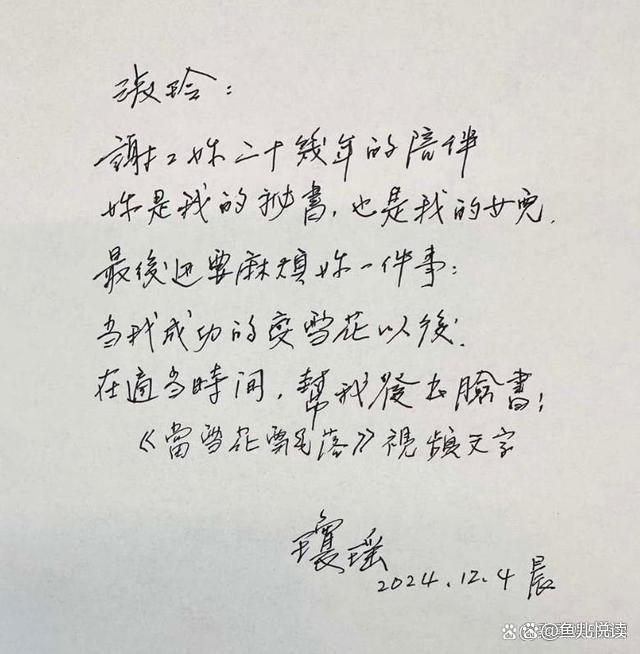 淑玲:
謝謝妳二十幾年的陪伴
妳是我的秘書,也是我的女兒.
最後还要麻煩妳一件事:
当我成功的变雪花以後.
在適当時间,幫我發去臉書:
《當雪花飄落》視頻文字
瓊瑤
2024.12.4 晨
鱼川悦读